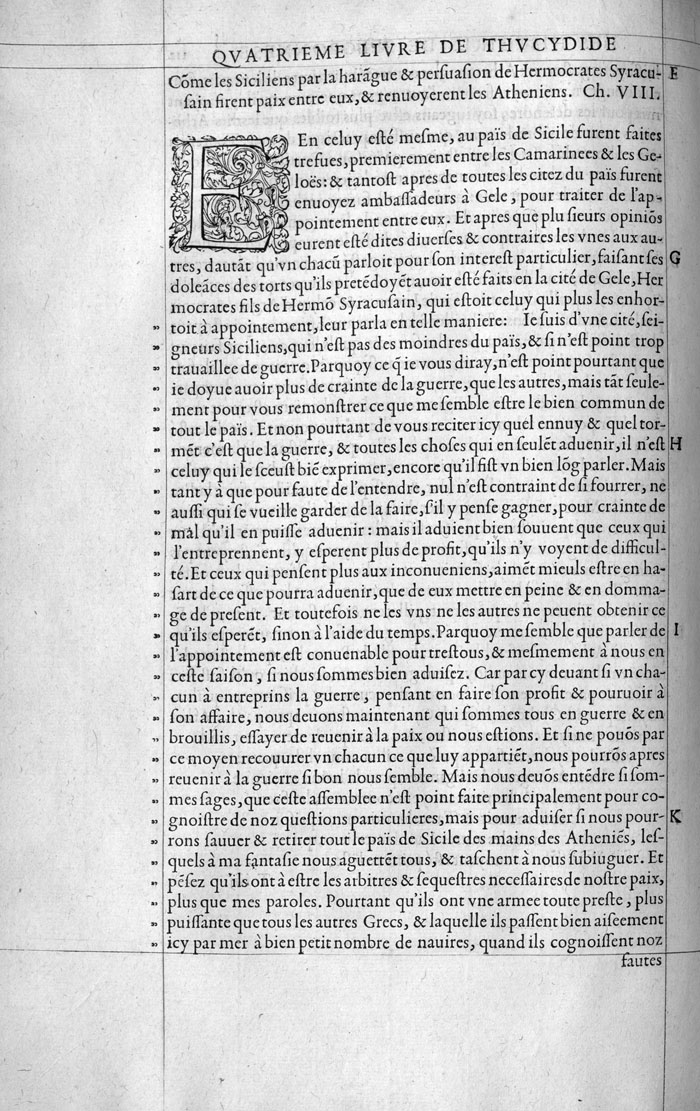 QVATRIEME LIVRE DE THVCYDIDE
Cõme les Siciliens par la harãgue & persuasion de Hermocrates Syracu- F
sain firent paix entre eux, & renuoyerent les Atheniens. Ch. VIII.
En celuy esté mesme, au païs de Sicile furent faites
trefues, premierement entre les Camarinees & les Ge-
loës: & tantost apres de toutes les citez du païs furent
enuoyez ambassadeurs à Gele, pour traiter de l'ap-
pointement entre eux. Et apres que plusieurs opiniõs
eurent esté dites diuerses & contraires les vnes aux au-
tres, dautãt qu'vn chacũ parloit pour son interest particulier, faisant ses G
doleãces des torts qu'ils pretẽdoyẽt auoir esté faits en la cité de Gele, Her
mocrates fils de Hermõ Syracusain, qui estoit celuy qui plus les enhor-
" toit à appointement, leur parla en telle maniere: Ie suis d'vne cité, sei-
" gneurs Siciliens, qui n'est pas des moindres du païs, & si n'est point trop
" trauaillee de guerre. Parquoy ce q̃ ie vous diray, n'est point pourtant que
" ie doyue auoir plus de crainte de la guerre, que les autres, mais tãt seule-
" ment pour vous remonstrer ce que me semble estre le bien commun de
" tout le païs. Et non pourtant de vous reciter icy quel ennuy & quel tor-
" mẽt c'est que la guerre, & toutes les choses qui en seulẽt aduenir, il n'est H
" celuy qui le sceust biẽ exprimer, encore qu'il fist vn bien lõg parler. Mais
" tant y à que pour faute de l'entendre, nul n'est contraint de si fourrer, ne
" aussi qui se vueille garder de la faire, s'il y pense gagner, pour crainte de
" mal qu'il en puisse aduenir: mais il aduient bien souuent que ceux qui
" l'entreprennent, y esperent plus de profit, qu'ils n'y voyent de difficul-
" té. Et ceux qui pensent plus aux inconueniens, aimẽt mieuls estre en ha-
" sart de ce que pourra aduenir, que de eux mettre en peine & en domma-
" ge de present. Et toutefois ne les vns ne les autres ne peuent obtenir ce
" qu'ils esperẽt, sinon à l'aide du temps. Parquoy me semble que parler de I
" l'appointement est conuenable pour trestous, & mesmement à nous en
" ceste saison, si nous sommes bien aduisez. Car par cy deuant si vn cha-
" cun à entreprins la guerre, pensant en faire son profit & pouruoir à
" son affaire, nous deuons maintenant qui sommes tous en guerre & en
" brouillis, essayer de reuenir à la paix ou nous estions. Et si ne pouõs par
" ce moyen recouurer vn chacun ce que luy appartiẽt, nous pourrõs apres
" reuenir à la guerre si bon nous semble. Mais nous deuõs entẽdre si som-
" mes sages, que ceste assemblee n'est point faite principalement pour co-
" gnoistre de noz questions particulieres, mais pour aduiser si nous pour- K
" rons sauuer & retirer tout le païs de Sicile des mains des Atheniẽs, les-
" quels à ma fantasie nous aguettẽt tous, & taschent à nous subiuguer. Et
" pẽsez qu'ils ont à estre les arbitres & sequestres necessaires de nostre paix,
" plus que mes paroles. Pourtant qu'ils ont vne armee toute preste, plus
" puissante que tous les autres Grecs, & laquelle ils passent bien aiseement
" icy par mer à bien petit nombre de nauires, quand ils cognoissent noz
fautes